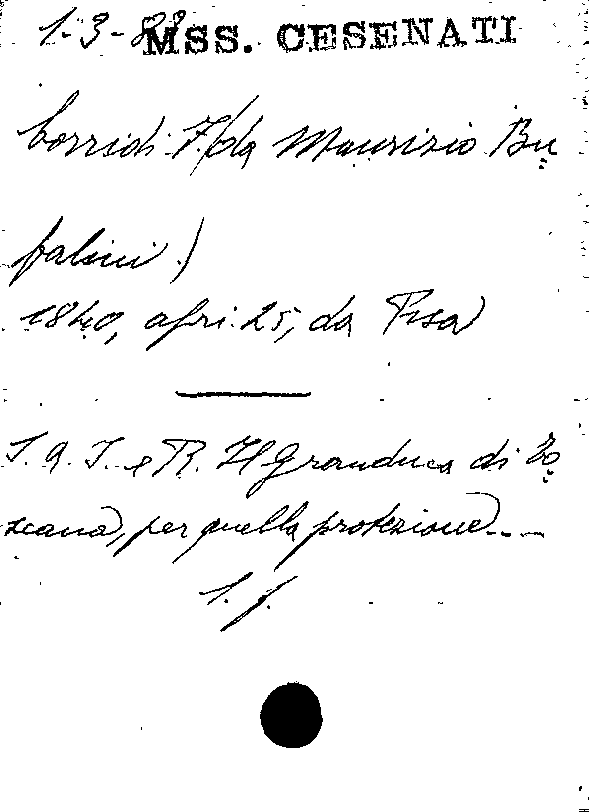 1-3-88 MSS. CESENATI
Corridi F. (da Maurizio Bu
falini)
1840, apri. 25, da Pisa
S. A. I. e R. Il Granduca di To
scana, per quella protezione....
1. f.